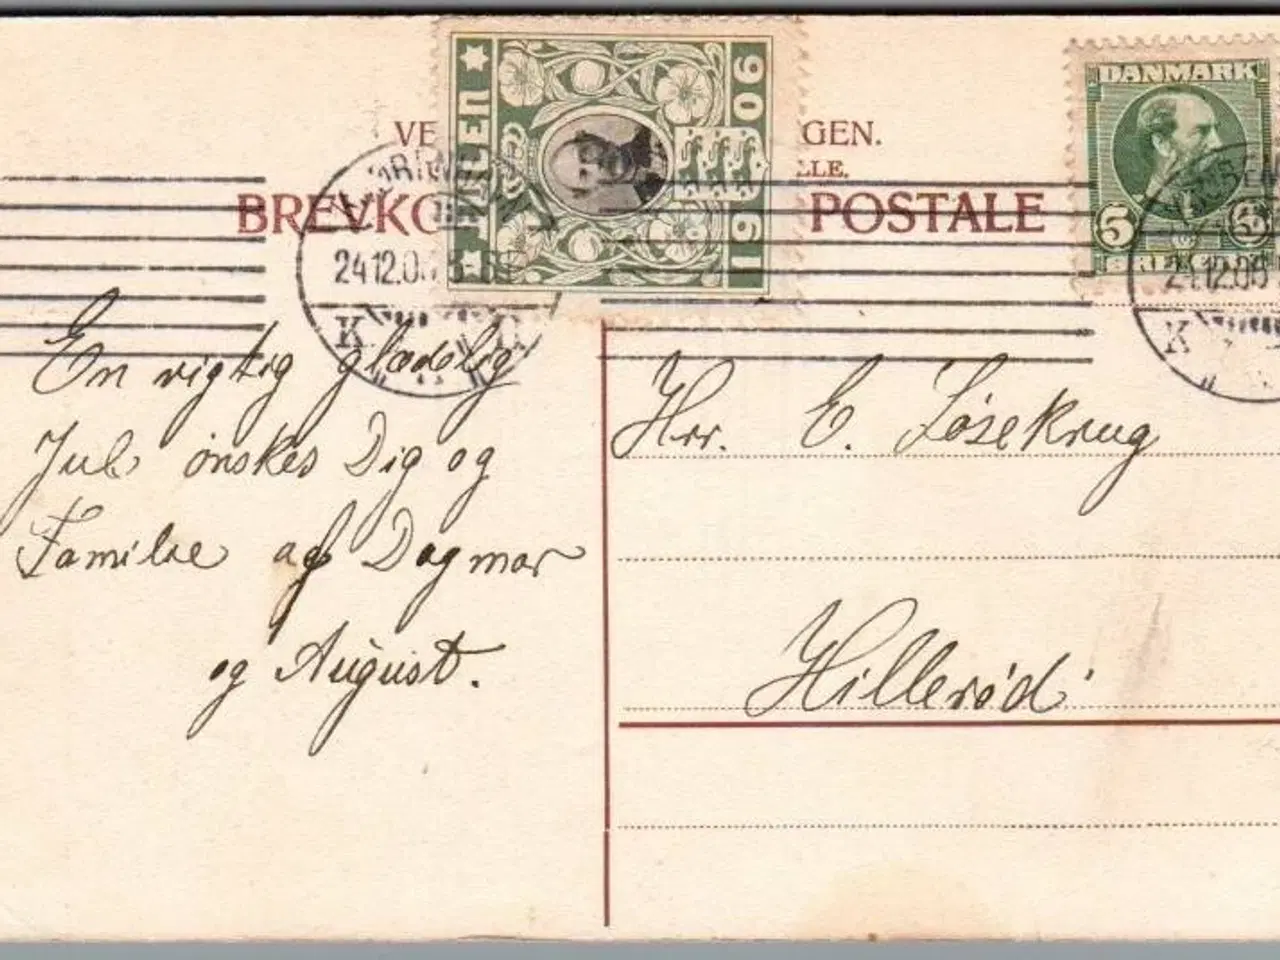 VE GEN.
LLE.
BREVKO POSTALE
JULEN 1906
DANMARK
5
24.12.06
K
24.12.06
K
En rigtig glædelig
Jul ønskes Dig og
Familie af Dagmar
og August.
Hrr. C. Løsekrug
Hillerød